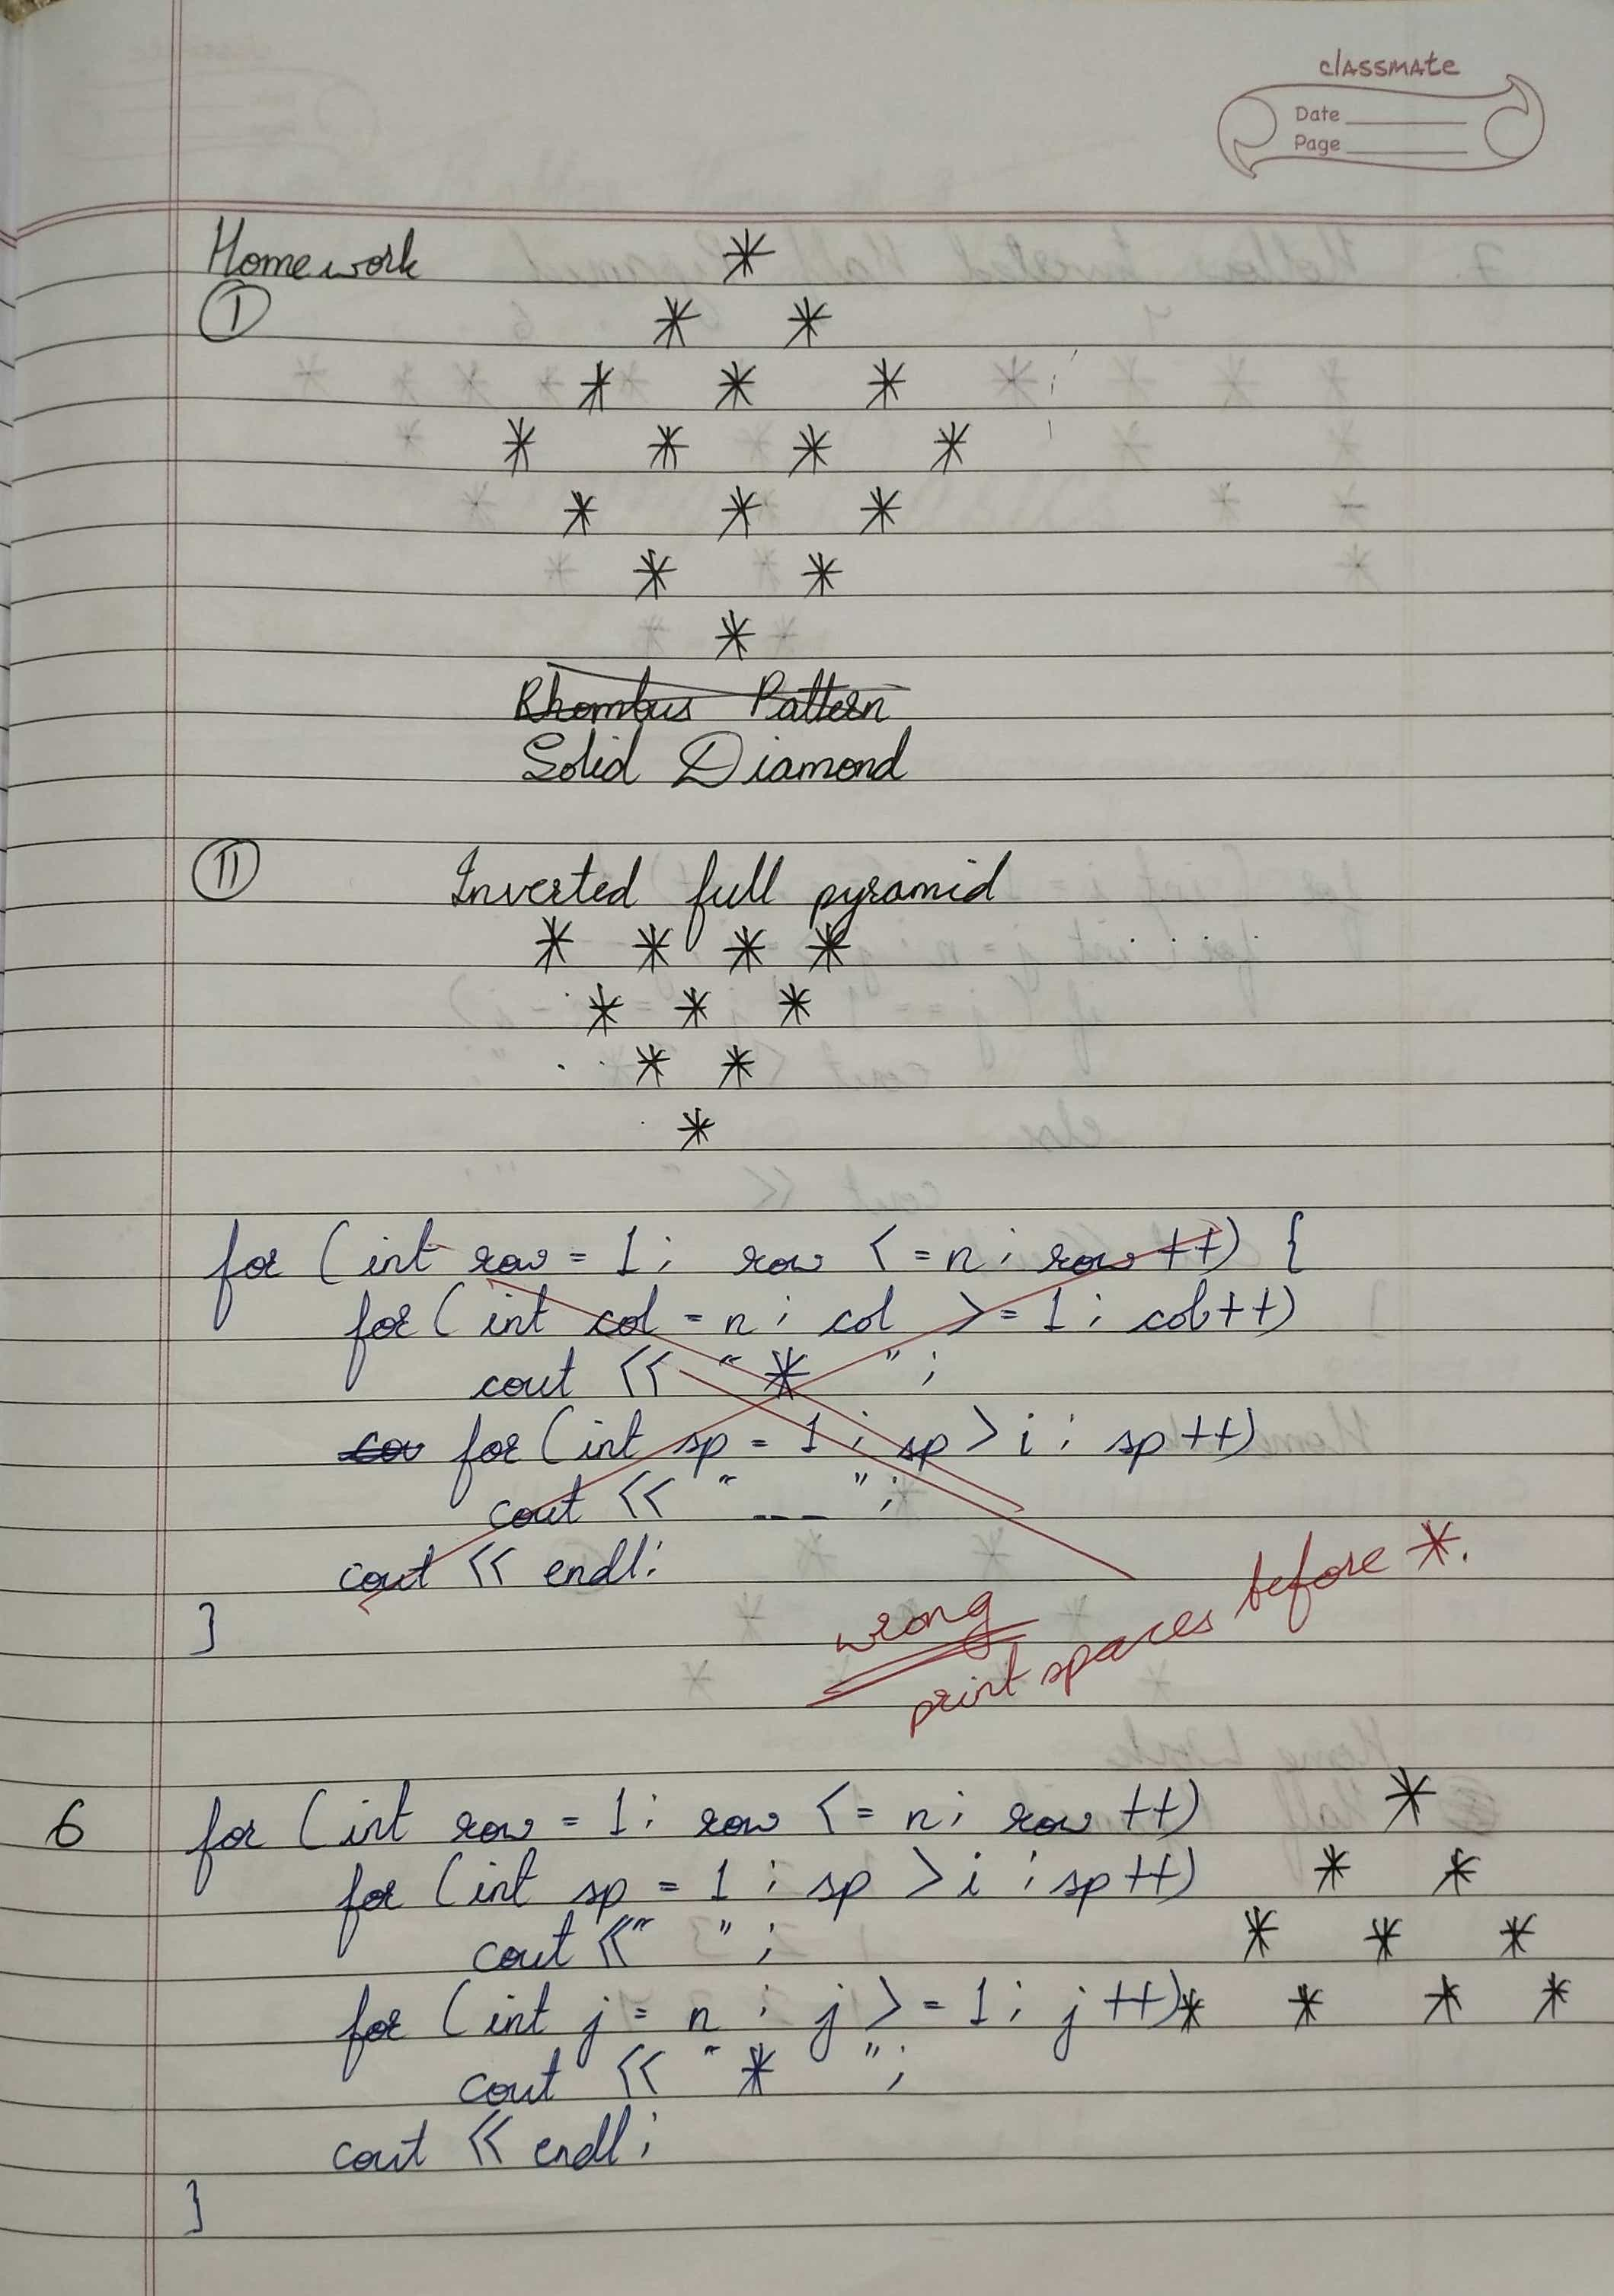 classmate
Date
Page
Homework *
I * *
* * *
* * * *
* * *
* *
*
Rhombus Pattern
Solid Diamond
II Inverted full pyramid
* * * *
* * *
* *
*
for (int row = 1; row <= n; row ++) {
for (int col = n; col >= 1; col++)
cout << " * ";
cou for (int sp = 1; sp > i; sp ++)
cout << " _ _ _ ";
cout << endl;
}
wrong
print spaces before *.
6 for (int row = 1; row <= n; row ++) *
for (int sp = 1; sp > i; sp ++) * *
cout << " "; * * *
for (int j = n; j >= 1; j ++) * * * *
cout << " * ";
cout << endl;
}